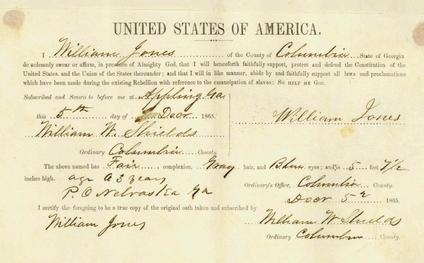 UNITED STATES OF AMERICA.
I William Jones of the County of Columbia State of Georgia
do solemnly swear or affirm, in presence of Almighty God, that I will henceforth faithfully support, protect and defend the Constitution of the
United States, and the Union of the States thereunder; and that I will in like manner, abide by and faithfully support all laws and proclamations
which have been made during the existing Rebellion with reference to the emancipation of slaves: So HELP ME GOD.
Subscribed and Sworn to before me at Appling Ga
this 5th day of Decr 1865.
William Jones
William W. Shields
Ordinary Columbia County.
The above named has Fair complexion, Gray hair, and Blue eyes; and is 5 feet 7 1/2
inches high. age 63 years
Ordinary's Office, Columbia County.
P. O Nebraska Ga
Decr 5th 1865.
I certify the foregoing to be a true copy of the original oath taken and subscribed by
William Jones
William W. Shields
Ordinary Columbia County.